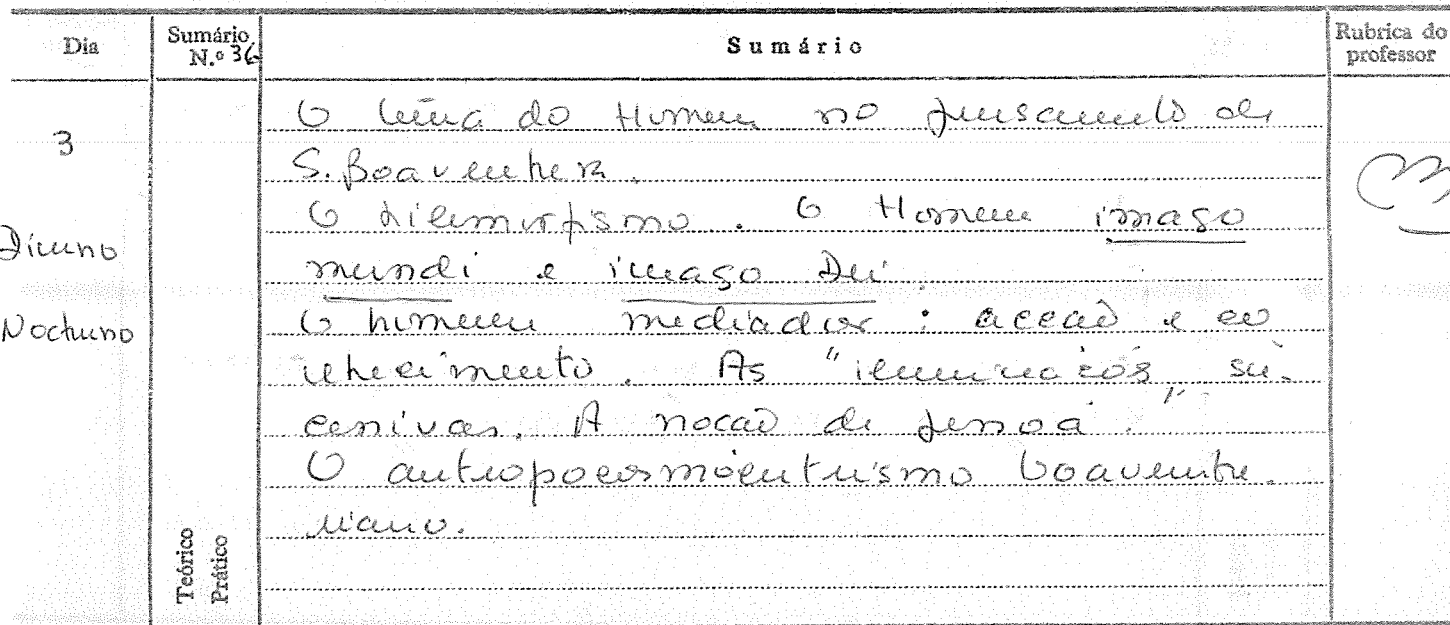 Dia
Sumário N.º 36
Sumário
Rubrica do professor
3
Diurno
Nocturno
O tema do Homem no pensamento de
S. Boaventura.
O hilemorfismo. O Homem imago
mundi e imago Dei.
O homem mediador: acção e co
nhecimento. As "iluminações su-
cessivas". A noção de pessoa.
O antropocosmocentrismo boaventu-
riano.
Teórico
Prático